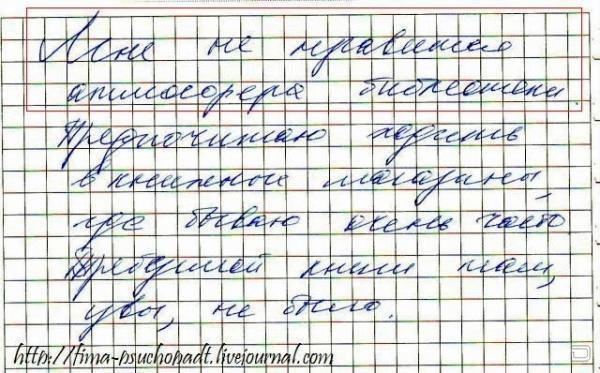 Мне не нравится
атмосфера библиотеки
Предпочитаю ходить
в книжные магазины,
где бываю очень часто
Требуемой книги там,
увы, не было.
http://fima-psuchopadt.livejournal.com